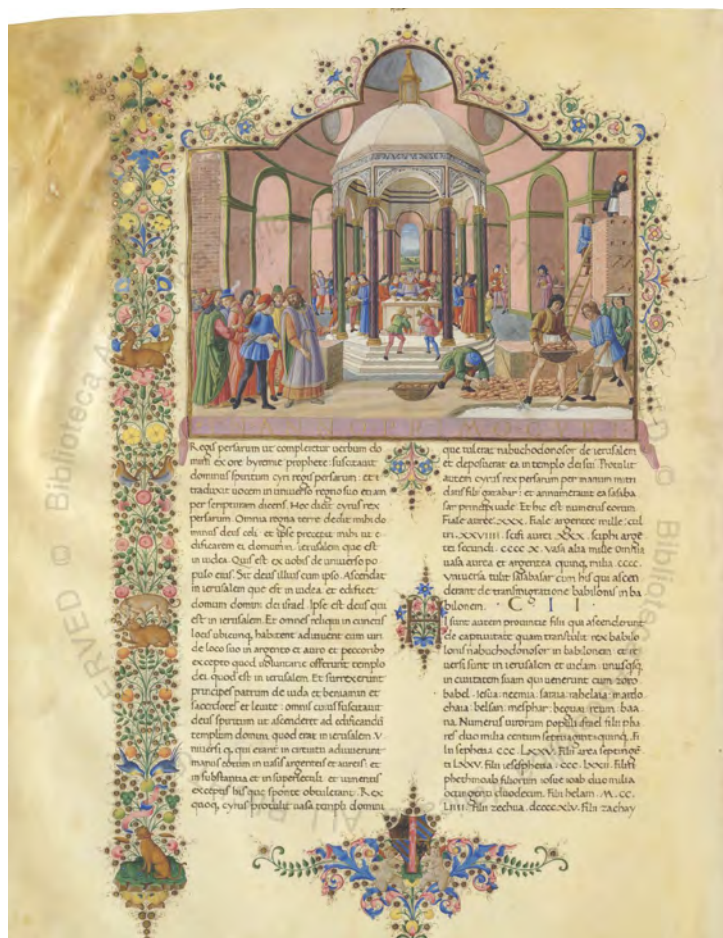 Regis persarum ut compleretur verbum do
mini ex ore hyremie prophete: suscitavit
dominus spiritum cyri regis persarum: et t
traduxit vocem in universo regno suo etiam
per scripturam dicens. Hec dicit cyrus rex
persarum. Omnia regna terre dedit mihi do
minus deus celi: et ipse precepit mihi ut e
dificarem ei domum in ierusalem que est
in iudea. Quis est ex vobis de universo po
pulo eius. Sit deus illius cum ipso. Ascendat
in ierusalem que est in iudea. et edificet
domum domini dei israel. Ipse est deus qui
est in ierusalem. Et omnes reliqui in cunctis
locis ubicunq; habitent adiuvent eum viri
de loco suo in argento et auro et peccoribus
excepto quod voluntarie offerunt templo
dei quod est in ierusalem. Et surrexerunt
principes patrum de iuda et beniamin et
sacerdotes et levite: omnis cuius suscitavit
deus spiritum ut ascenderet ad edificandum
templum domini quod erat in ierusalem. V
niversi q; qui erant in circuitu adiuverunt
manus eorum in vasis argenteis et aureis: et
in substantia et in suppellectili et iumentis
exceptis his que sponte obtulerant. Rex
quoq; cyrus protulit vasa templi domini
que tulerat nabuchodonosor de ierusalem
et deposuerat ea in templo dei sui. Protulit
autem cyrus rex persarum per manum mitri
datis filii gazabar: et annumeravit ea sasaba
sar principi iude. Et hic est numerus eorum
Fiale auree .XXX. Fiale argentee mille: cul
tri .XXVIIII. scifi aurei .XXX. sciphi argen
tei secundi. cccc X. vasa alia mille Omnia
vasa aurea et argentea quinq; milia cccc.
Universa tulit sasabasar cum his qui ascen
derant de transmigratione babilonis in
bilonem. C II
H
I sunt autem provincie filii qui ascenderunt
de captivitate quam transtulit rex babilo
nabuchodonosor in babilonem et re
versi sunt in ierusalem et iudam unusqsq;
in civitatem suam qui venerunt cum zoro
babel. iesua: neemia: saraia: rahelaia: mardo
chaia: belsan: mesphar: beguai: reum: baa
na. Numerus virorum populi israel filii pha
res duo milia centum septuaginta quinq; Fi
lii sephetia ccc LXXII. Filii area septinge
ti LXXV. Filii
phethmoab filiorum iosue ioab duo milia
octingenti duodecim. Filii helam .M. CC.
LIIII Filii zechua. dccccXLV. Filii zachay
© Biblioteca
ALL